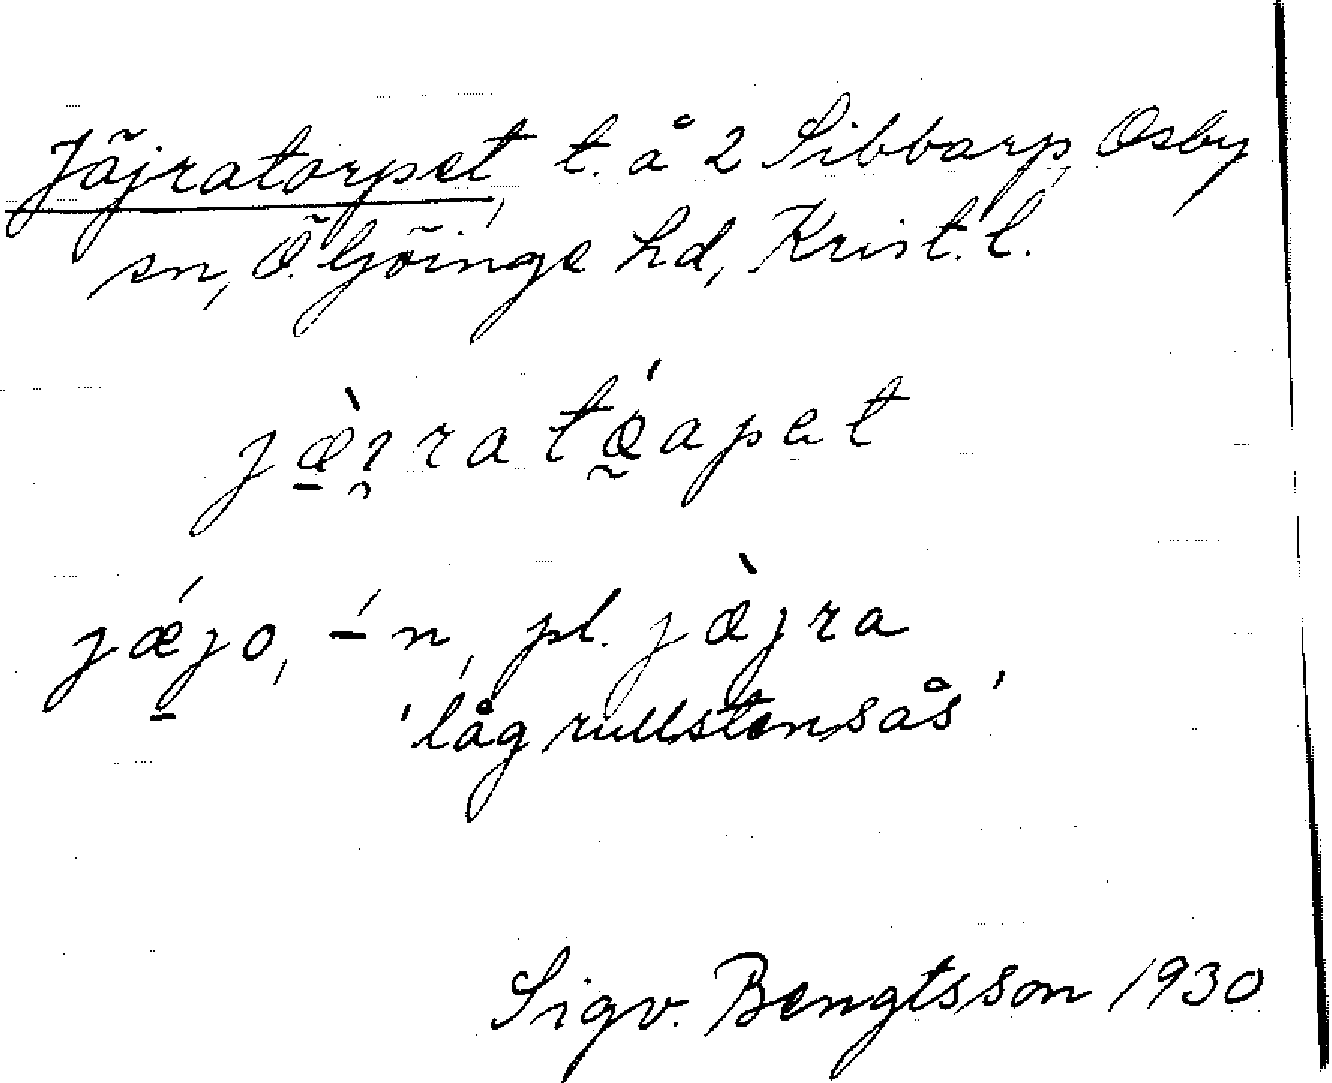 Jäjratorpet, t. å 2 Sibbarp, Osby
sn, Ö. Göinge hd, Krist. l.
jæ̠̀ɪ̯ratǽ̰apet
jǽ̠jo, -́n, pl. jæ̀jra
'låg rullstensås'
Sigv. Bengtsson 1930